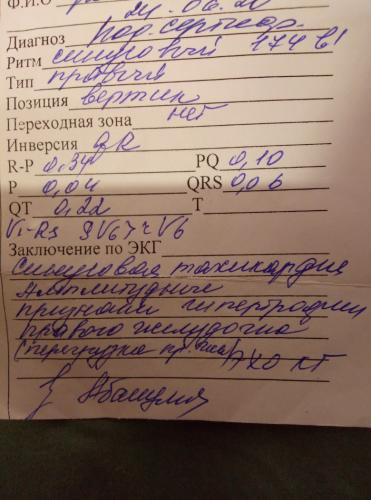 Ф.И.О
24.06.20
Диагноз пор. сердца
Ритм синусовый 174 в1
Тип правый
Позиция вертик
Переходная зона нет
Инверсия qR
R-P 0,34 PQ 0,10
P 0,04 QRS 0,06
QT 0,22 T
V1-Rs SV6>rV6
Заключение по ЭКГ
Синусовая тахикардия
Амплитудные
признаки гипертрофии
правого желудочка
(перегрузка пр. ) ЭХО КГ